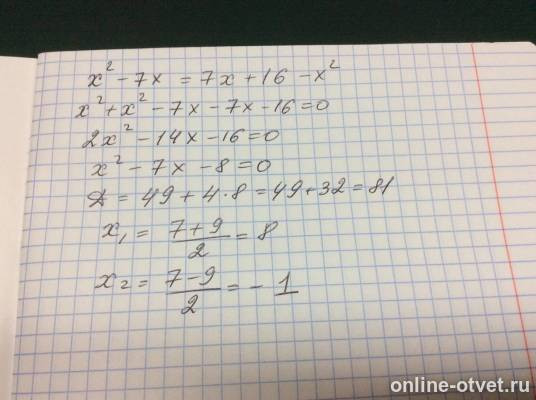 x² - 7x = 7x + 16 - x²
x² + x² - 7x - 7x - 16 = 0
2x² - 14x - 16 = 0
x² - 7x - 8 = 0
D = 49 + 4·8 = 49 + 32 = 81
x₁ = (7 + 9)/2 = 8
x₂ = (7 - 9)/2 = - 1
online-otvet.ru